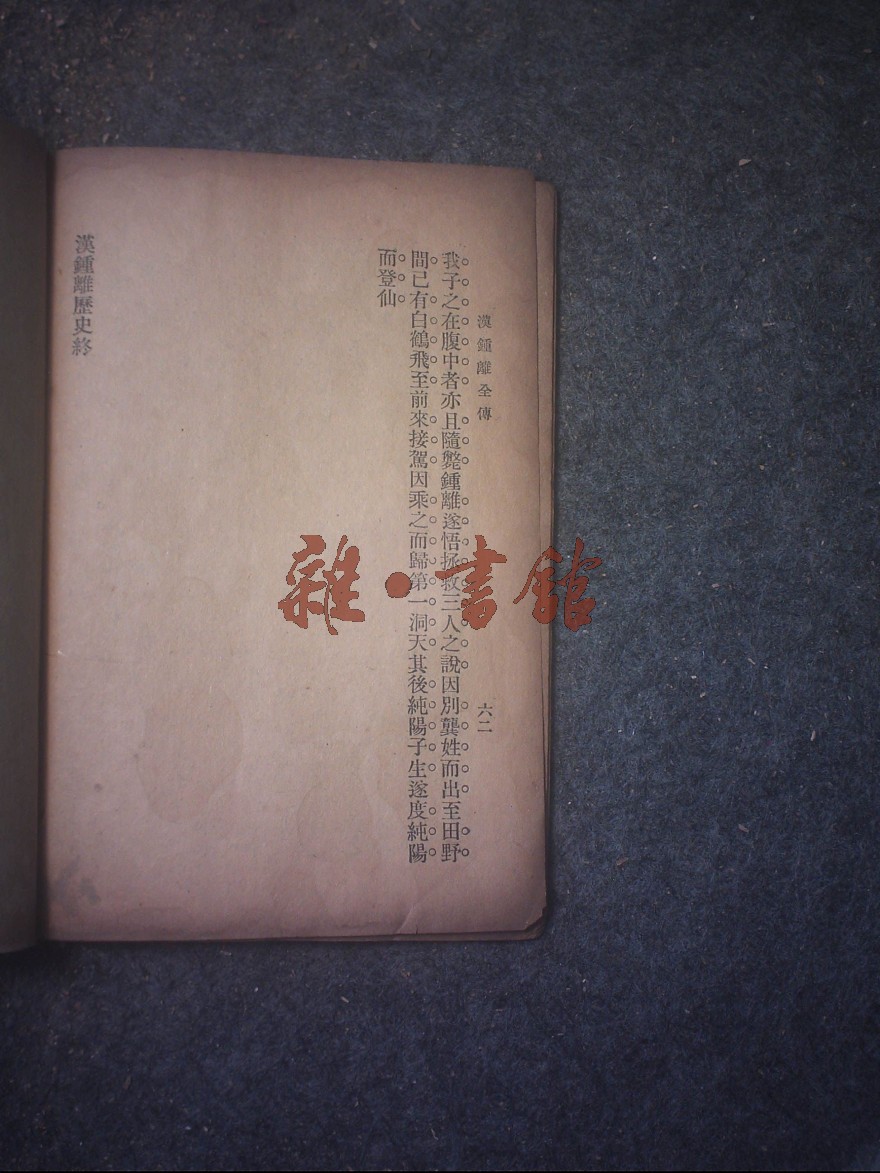 漢鍾離全傳
六二
我子之在腹中者亦且隨斃鍾離遂悟拯救三人之說因別龔姓而出至田野
間已有白鶴飛至前來接駕因乘之而歸第一洞天其後純陽子生遂度純陽
而登仙
漢鍾離歷史終
雜·書館